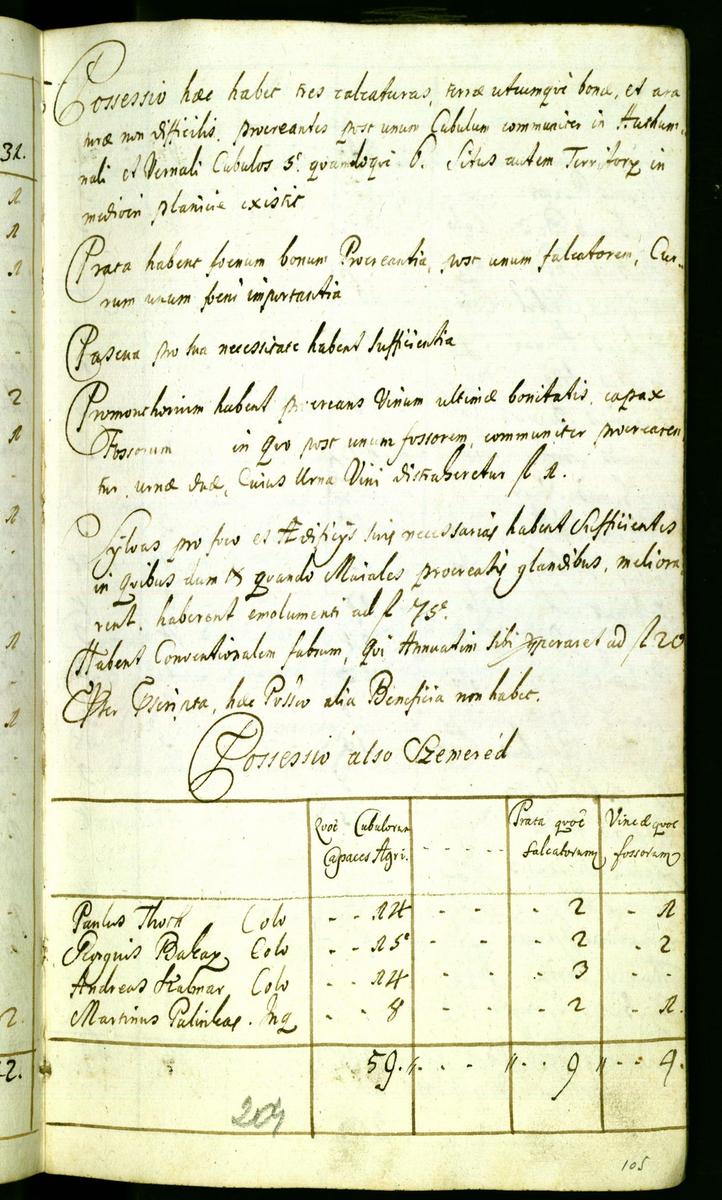 Possessio haec habet tres calcaturas, terrae utcumque bonae, et ara
turae non difficilis, procreantes post unum Cubulum communiter in Authum-
nali et Vernali Cubulos 5. quandoque 6. Situs autem Territory in
mediocri planicie existit
Prata habent foenum bonum Procreantia, post unum falcatorem, Cur-
rum unum foeni importantia
Pascua pro sua necessitate habent Sufficientia
Promonthorium habent procreans Vinum ultimae bonitatis, capax
Fossorum in quo post unum fossorem, communiter procrearen
tur urnae duae, Cuius Urna Vini distraheretur f 1.
Sylvas pro foco et Aedificys suis necessarias habent Sufficientes
in quibus dum et quando Maiales procreatis glandibus, meliora
rent, haberent emolumenti ad f 75.
Habent Conventionalem fabrum, qui Annuatim sibi ad f 20
haec Possessio alia Beneficia non habet.
Possessio also Szemeréd
Quot Cubulorum Prata quot Vineae quot
Capaces Agri. - - - - - falcatorum fossorum
Paulus Thoth Colo - - 14 - - - 2 - 1
Georgius Bakay Colo - - 15 - - - 2 - 2
Andreas Colo - - 14 - - - 3 - -
Martinus Palinkas. Inq - - 8 - - - 2 - 1.
59. " - - - " - - 9 " - - 4.
204
105
31.
1
1
1
-
-
2
1
1
-
1
-
1
2.
2.